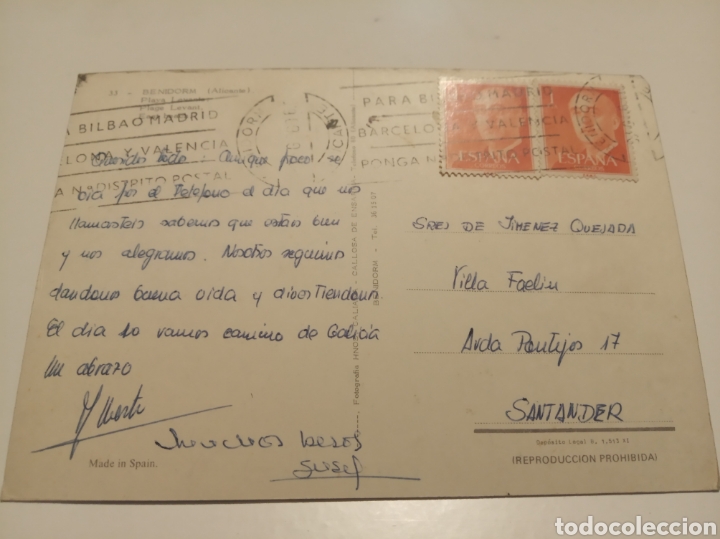 33 - BENIDORM (Alicante)
Playa Levante
Plage Levant
PARA BILBAO MADRID
BARCELONA Y VALENCIA
PONGA Nº DISTRITO POSTAL
PARA BILBAO MADRID
BARCELONA Y VALENCIA
PONGA Nº DISTRITO POSTAL
ESPAÑA
ESPAÑA
Queridos todo: Aunque poco se
oia por el Telefono el dia que nos
llamasteis sabemos que estais bien
y nos alegramos. Nosotros seguimos
dandonos buena vida y divirtiendonos
El dia 10 vamos camino de Galicia
Un abrazo
muchos besos
Made in Spain.
CALLOSA DE ENSARRIA
BENIDORM - Tel.
SRES DE JIMENEZ QUEJADA
Villa Faelin
Avda Pontejos 17
SANTANDER
Depósito Legal B.
(REPRODUCCION PROHIBIDA)
todocoleccion